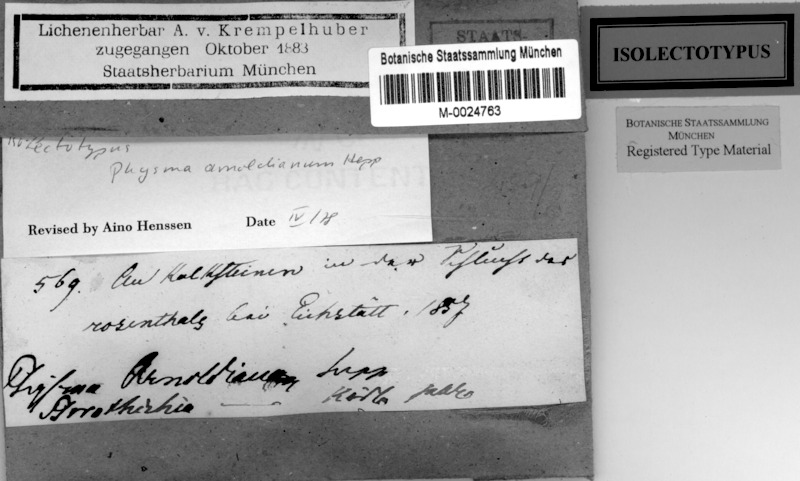 Lichenenherbar A. v. Krempelhuber
zugegangen Oktober 1883
Staatsherbarium München
STAATS-
Botanische Staatssammlung München
M-0024763
ISOLECTOTYPUS
BOTANISCHE STAATSSAMMLUNG
MÜNCHEN
Registered Type Material
Lectotypus
Physma arnoldianum Hepp
HAC CONTENT
Revised by Aino Henssen Date IV/78
569. An Kalksteinen in der Schlucht des
rosenthals bei Eichstätt. 1857
Physma Arnoldianum Hepp